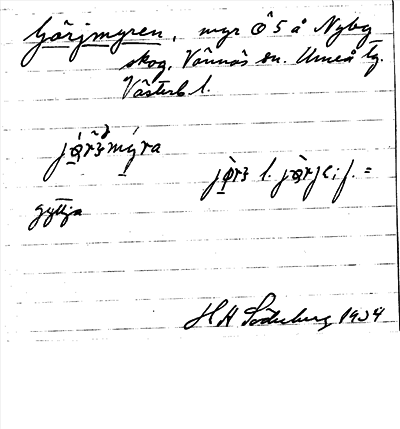 Görjmyren, myr Ö 5 å Nyby
skog, Vännäs sn. Umeå tg.
Västerb l.
jö̀rʒmýra
jö̀rʒ l. jö̀rje; f. =
gyttja
H H Söderberg 1934